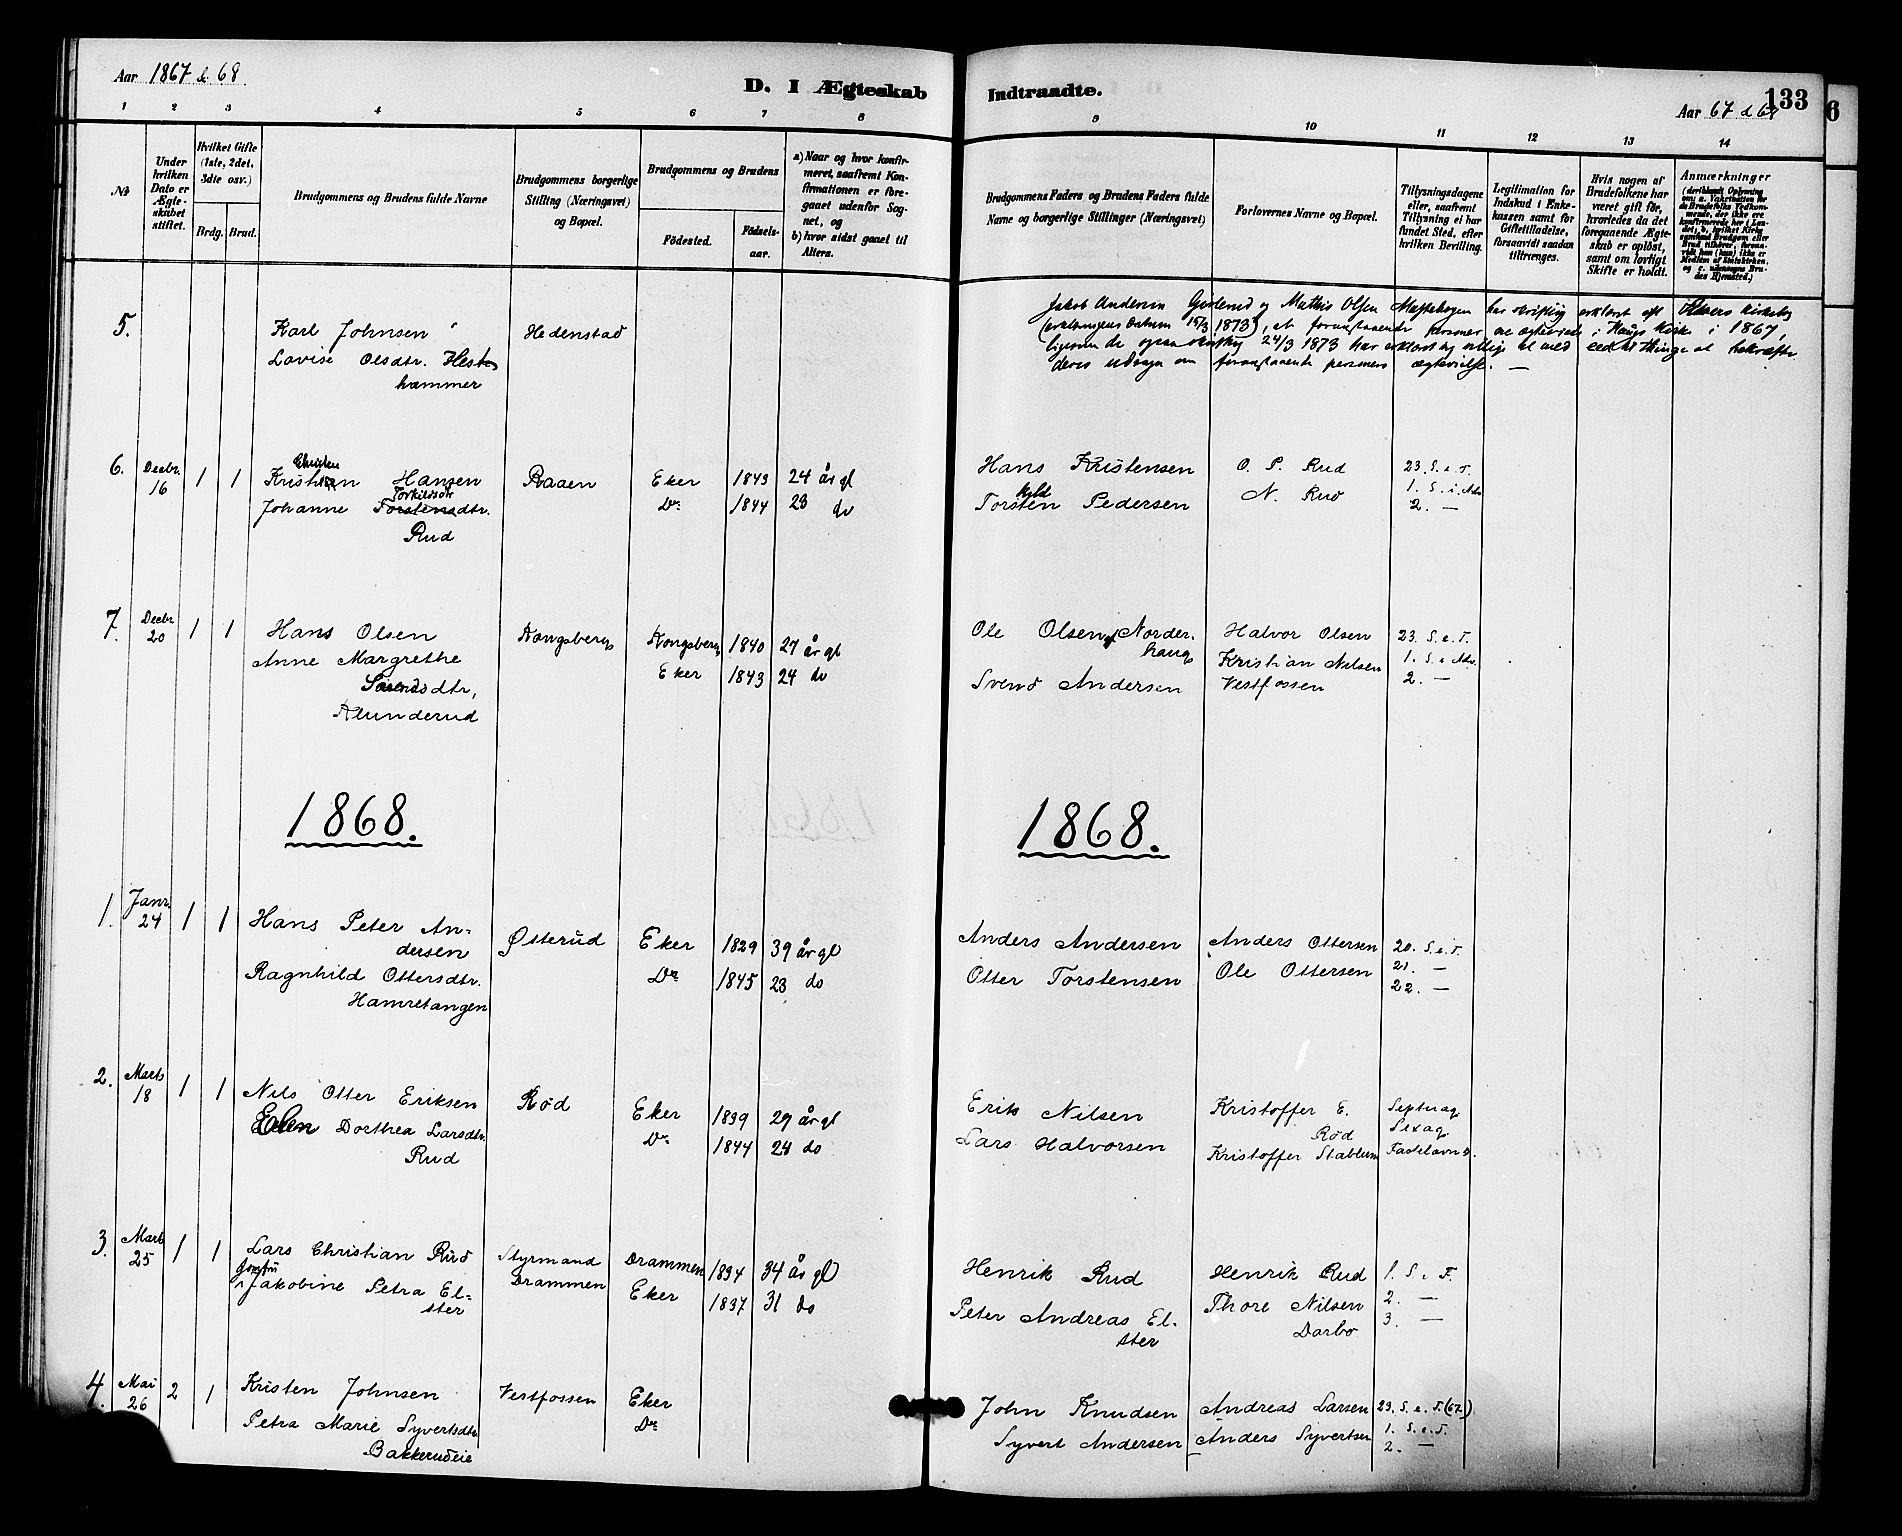 Aar 1867 & 68.
D. I Ægteskab
Indtraadte.
Aar 67 & 68
133
6
1 2 3 4 5 6 7 8
9 10 11 12 13 14
No
Under hvilken Dato er Ægteskabet stiftet.
Hvilket Gifte (1ste, 2det, 3die osv.)
Brdg. Brud.
Brudgommens og Brudens fulde Navne
Brudgommens borgerlige Stilling (Næringsvei) og Bopæl.
Brudgommens og Brudens
Födested.
Födsels-aar.
a) Naar og hvor konfirmeret, saafremt Konfirmationen er foregaaet udenfor Sognet, og
b) hvor sidst gaaet til Alters.
Brudgommens Faders og Brudens Faders fulde Navne og borgerlige Stillinger (Næringsvei)
Forlovernes Navne og Bopæl.
Tillysningsdagene eller, saafremt Tillysning ei har fundet Sted, efter hvilken Bevilling.
Legitimation for Indskud i Enkekassen samt for Giftetilladelse, forsaavidt saadan tiltrænges.
Hvis nogen af Brudefolkene har været gift før, hvorledes da det foregaaende Ægteskab er oplöst, samt om lovligt Skifte er holdt.
Anmærkninger
5.
Karl Johnsen
Lovise Olsdtr. Hestehammer
Hedenstad
Jakob Andersen Gjuslerud og Mathis Olsen har skriftlig erklæret
(erklæringens Datum 15/3 1873), at foranstaaende personer ere ægteviede i Haugs Kirke i 1867,
ligesom de ogsaa 24/3 1873 har erklæret sig villige til med eed til thinge at bekræfte
deres udsagn om foranstaaende personers ægtevielse. —
6. Decbr. 16 1 1
Christen
Kristian Hansen
Torkildsdtr
Johanne Torstensdtr.
Rud
Raaen
Eker 1843 24 år gl
Do 1844 23 do
Hans Kristensen
kild
Torsten Pedersen
O. P. Rud
N. Rud
23. S. e. T.
1. S. i. Adv.
2. —
7. Decbr 20 1 1
Hans Olsen
Anne Margrethe
Svendsdtr,
Klunderud
Kongsberg
Kongsberg 1840 27 år gl
Eker 1843 24 do
Ole Olsen Norderhaug
Svend Andersen
Halvor Olsen
Kristian Nilsen
Vestfossen
23. S. e. T.
1. S. i Adv.
2. —
1868.
1868.
1. Janr. 24 1 1
Hans Peter Andersen
Ragnhild Ottersdtr.
Hamretangen
Østerud
Eker 1829 39 år gl
Do 1845 23 do
Anders Andersen
Otter Torstensen
Anders Ottersen
Ole Ottersen
20. S. e. T.
21. —
22. —
2. Marts 18 1 1
Nils Otter Eriksen
Elen Dorthea Larsdtr.
Rud
Rød
Eker 1839 29 år gl
Do 1844 24 do
Erik Nilsen
Lars Halvorsen
Kristoffer E.
Rød
Kristoffer Stablum
Septuag
Sexag.
Fastelavn S.
3. Marts 25 1 1
Lars Christian Rud
Jomfru
Jakobine Petra Elster
Styrmand
Drammen
Drammen 1834 34 år gl
Eker 1837 31 do
Henrik Rud
Peter Andreas Elster
Henrik Rud
Thore Nilsen
Darbo
1. S. i F.
2. —
3. —
4 Mai 26 2 1
Kristen Johnsen
Petra Marie Syvertsdtr
Bakkerudeie
Vestfossen
Eker
Do
John Knudsen
Syvert Andersen
Andreas Larsen
Anders Syvertsen
23. S. e. T. (67)
1. S. e. T.
2. —